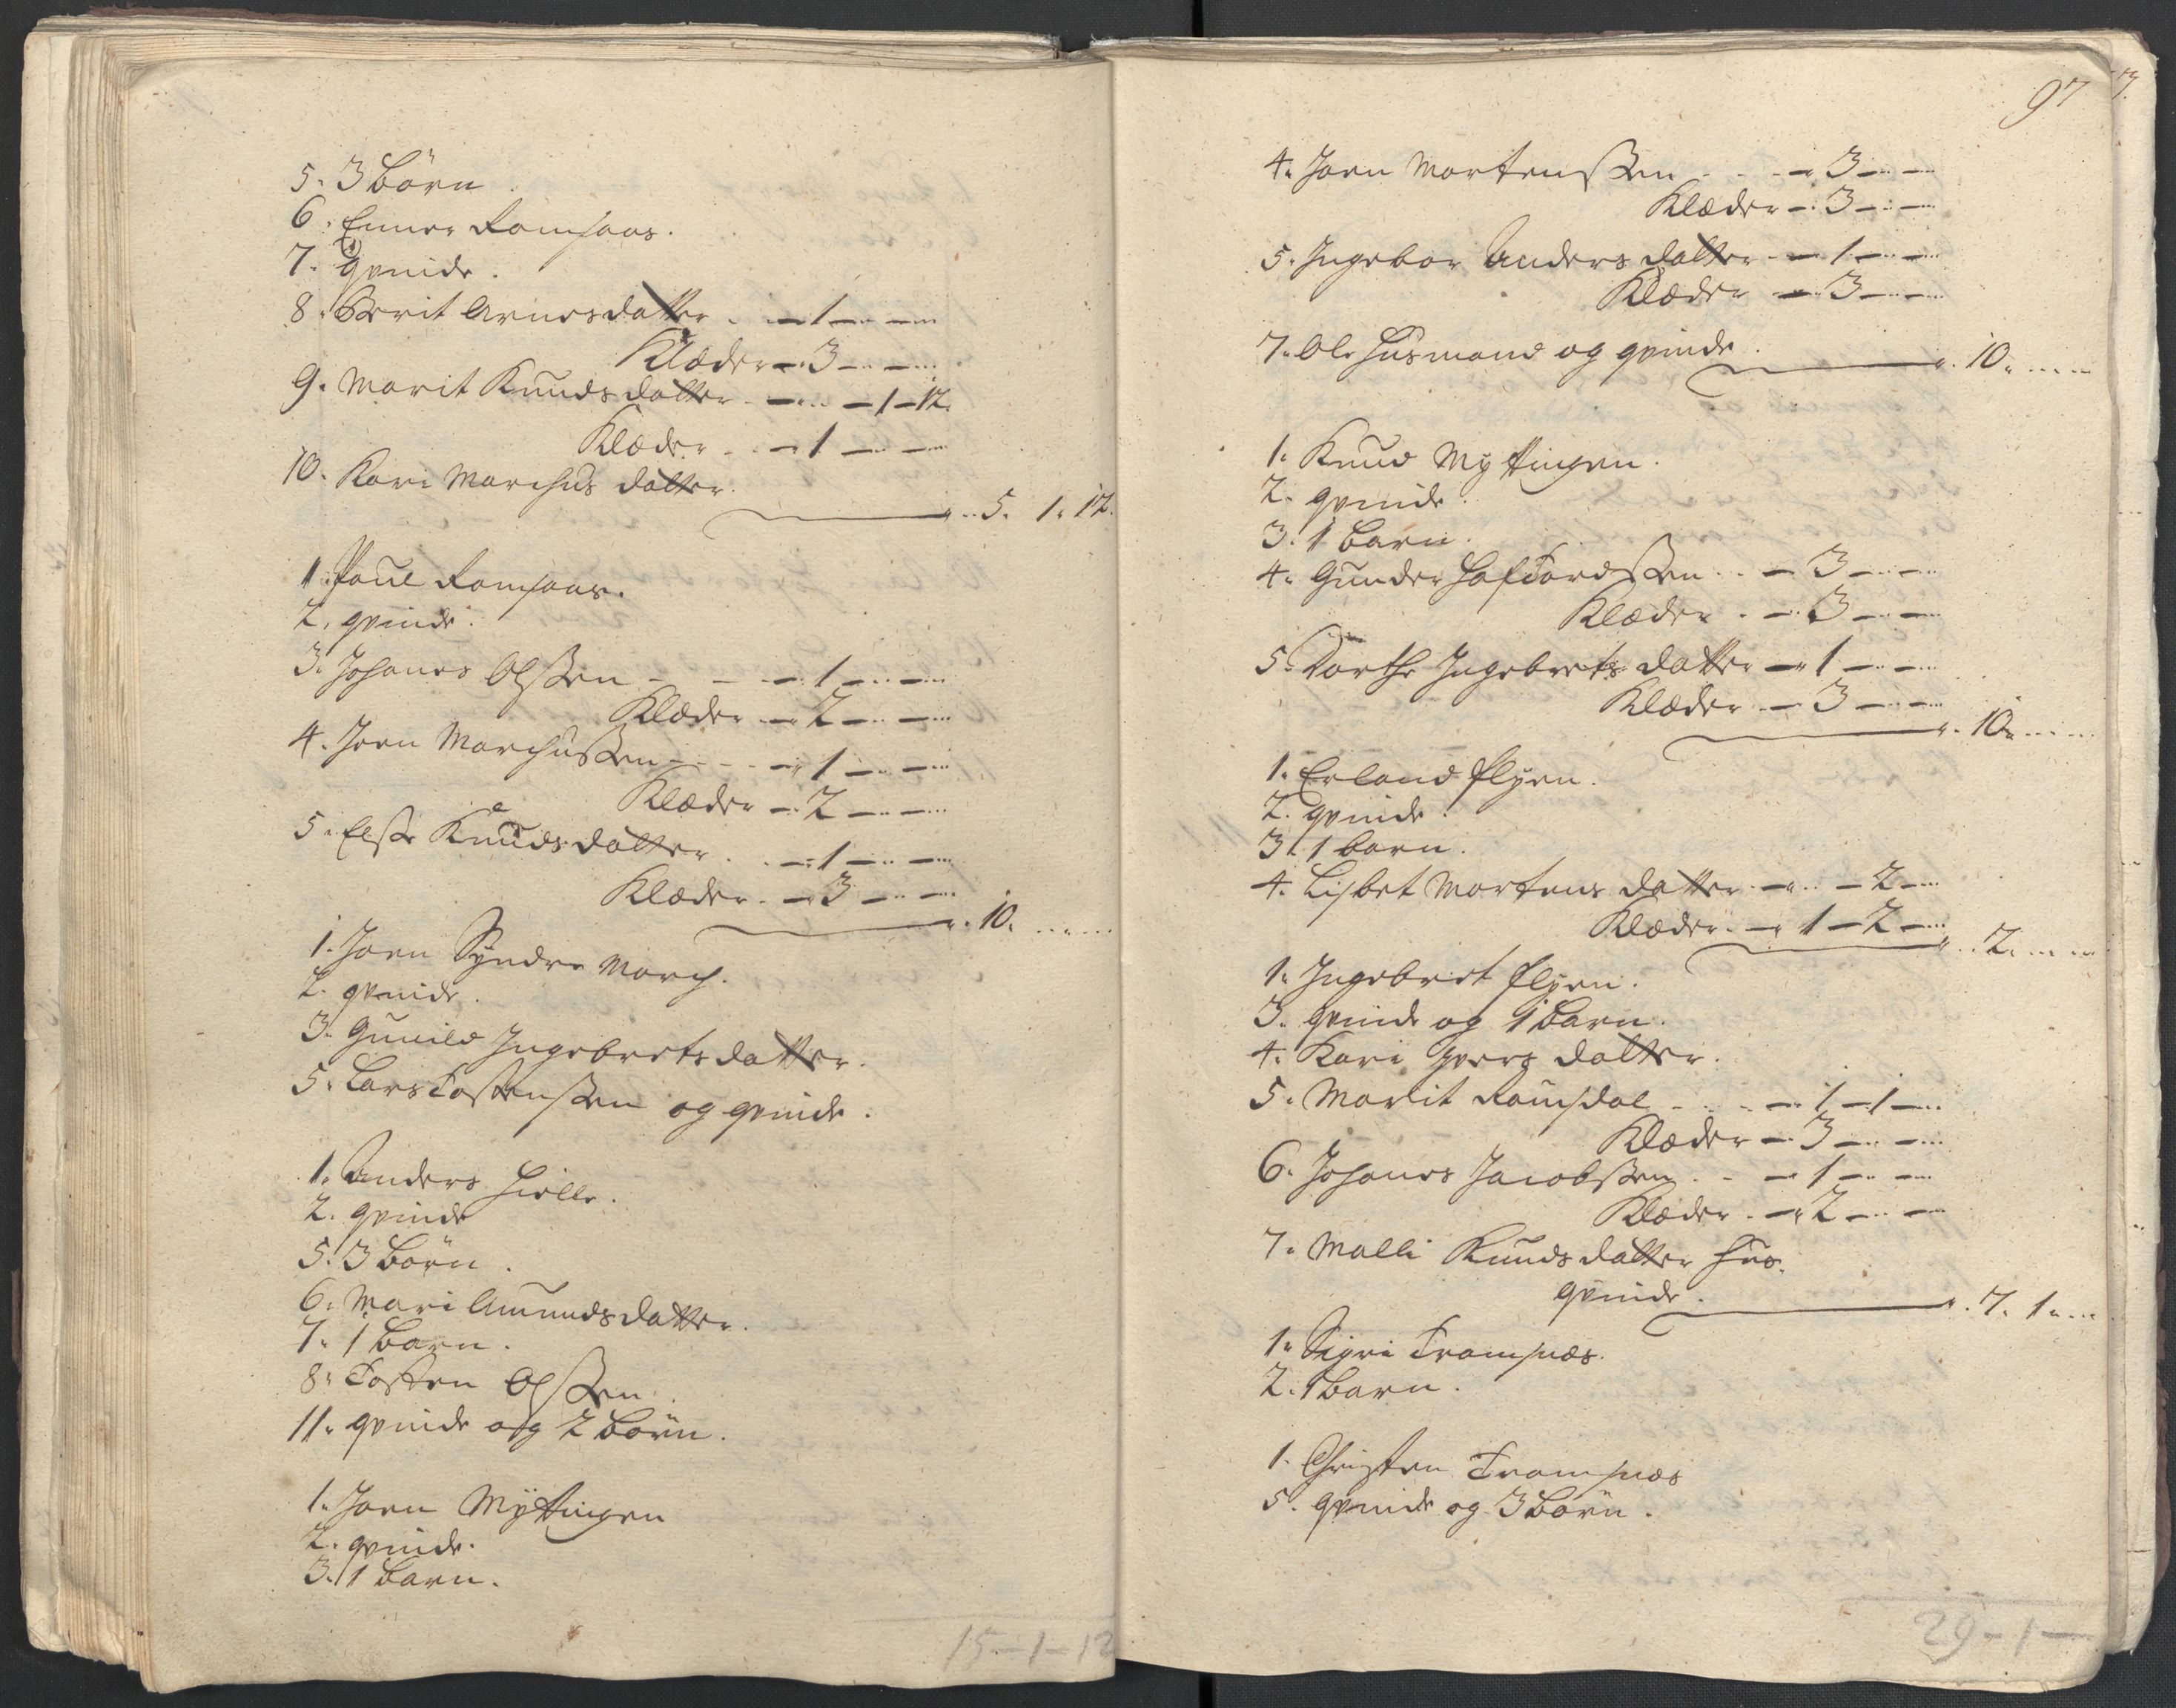 5. 3 Börn.
6. Enner Ramsaas.
7. qvinde.
8. Berit Arnesdatter. — 1 — —
Klæder — 3 — —
9. Marit Knudsdatter — — 1 — 12.
Klæder — 1 — —
10. Kari Marchus datter.
5. 1. 12.
1. Poul Ramsaas.
2. qvinde.
3. Johanes Olssen — 1 — —
Klæder — 2 — —
4. Joen Marchussen — 1 — —
Klæder — 2 — —
5. Else Knudsdatter — 1 — —
Klæder — 3 — —
10. — —
1. Joen Syndre March.
2. qvinde.
3. Gunild Ingebretsdatter.
5. Lars Tostenssen og qvinde.
1. Anders Hielle.
2. qvinde
5. 3 Börn.
6. Mari Amundsdatter.
7. 1 Barn.
8. Tosten Olssen.
11. qvinde og 2 Börn.
1. Joen Myttingen
2. qvinde.
3. 1 Barn.
15-1-12
97
4. Joen Mortenssen — 3 — —
Klæder — 3 — —
5. Ingebor Anders datter — 1 — —
Klæder — 3 — —
7. Ole Husmand og qvinde.
10. — —
1. Knud Myttingen.
2. qvinde.
3. 1 Barn.
4. Gunder Haftordssen — 3 — —
Klæder — 3 — —
5. Dorthe Ingebrets datter — 1 — —
Klæder — 3 — —
10. — —
1. Erland Flyen.
2. qvinde.
3. 1 barn.
4. Lisbet Mortens datter — — 2 —
Klæder — 1 — 2 —
2. — —
1. Ingebret Flyen.
3. qvinde og 1 Barn.
4. Kari Ivers datter.
5. Marit Romsdal — 1 — 1 —
Klæder — 3 — —
6. Johanes Jacobssen — 1 — —
Klæder — 2 — —
7. Malli Knudsdatter Hus-
qvinde.
7. 1. —
1. Sigri Tramsnæs.
2. 1 Barn.
1. Christen Tramsnæs
5. qvinde og 3 Börn.
29-1-